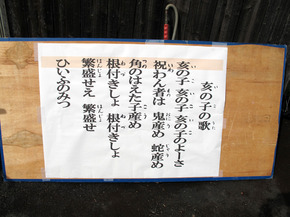 亥の子の歌
亥の子 亥の子 亥の子のよーさ
祝わん者は 鬼産め 蛇産め
角のはえた子産め
根付きしょ 根付きしょ
繁盛せえ 繁盛せ
ひいふのみつ